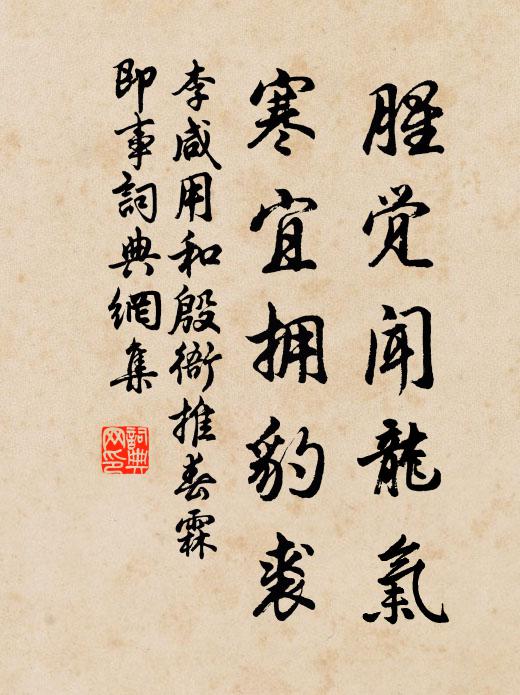 腥觉闻龍氣
寒宜拥豹裘
李咸用和殷衙推春霖
即事詞典網集
詞典
网印